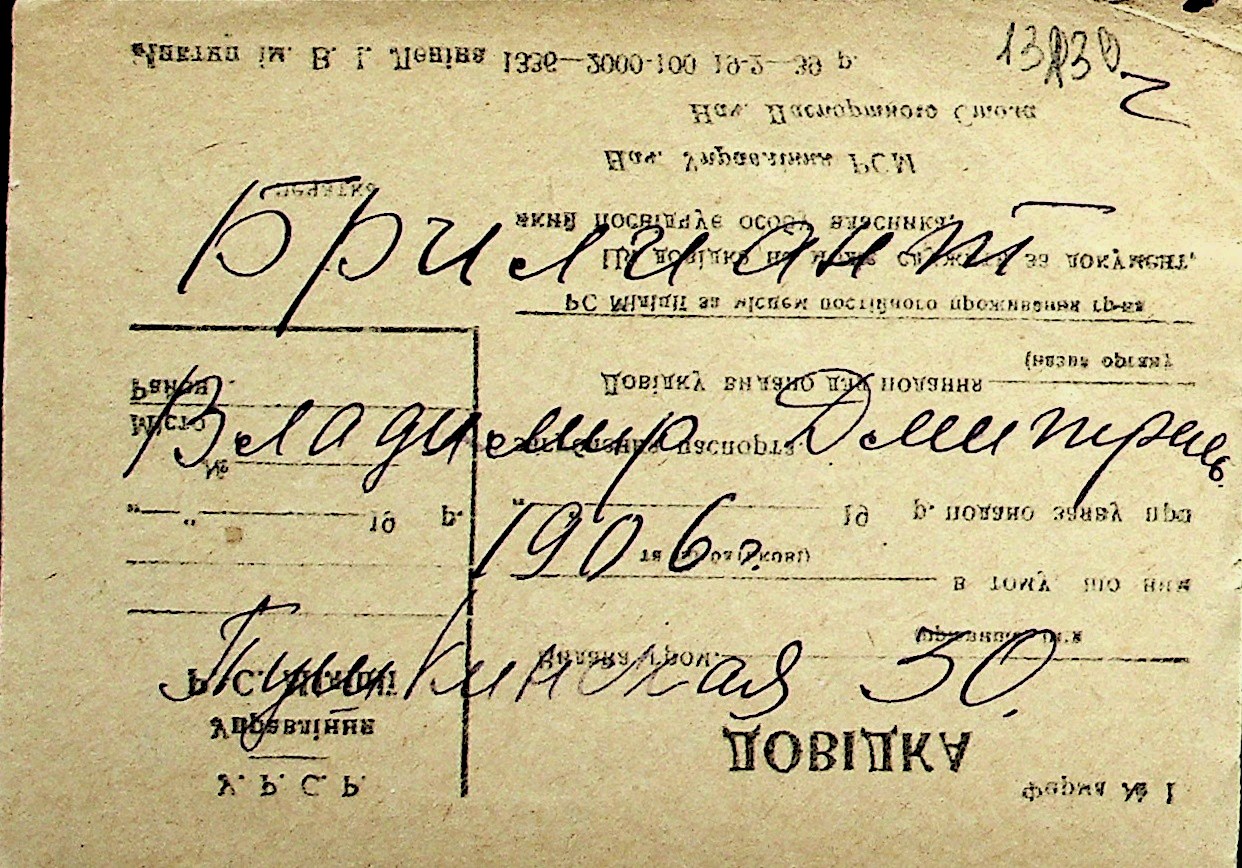 ім. В. І. Леніна 1336—2000-100 19-2—39 р.
Нач. Паспортного Стола
Нач. Управління РСМ
печатка
який посвідчує особу власника.
Брилиант
Ця довідка не може служити за документ,
РС Міліції за місцем постійного проживання гр-на
(назва органу
Район
Довідку видано для подання
Місто
Владимир Дмитриев.
паспорта.
№
" " 19 р.
" 19 р. подано заяву про
1906 г.
в тому що ним
Видана гром.
Пушкинская 30.
Р. С. Міліції
Управління
ДОВІДКА
У. Р. С. Р.
Форма № 1